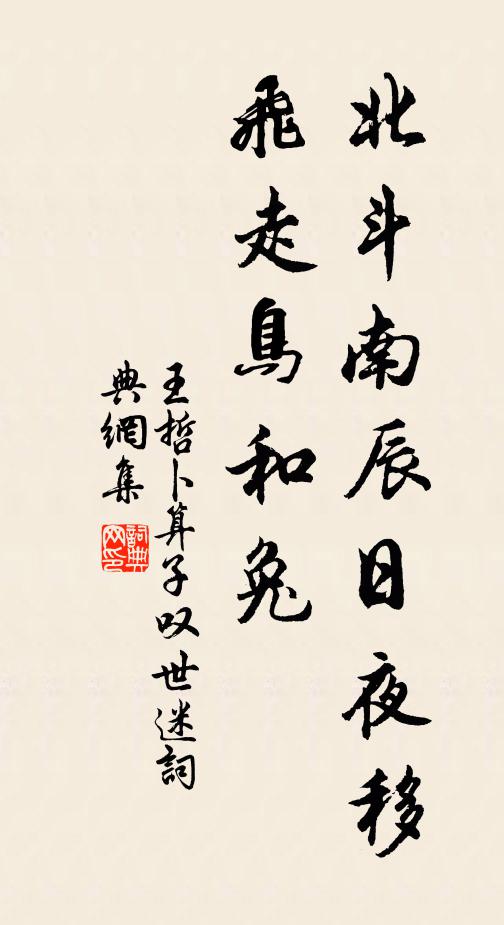 北斗南辰日夜移
飛走烏和兔
王哲卜算子叹世迷詞
典網集
詞典
网印